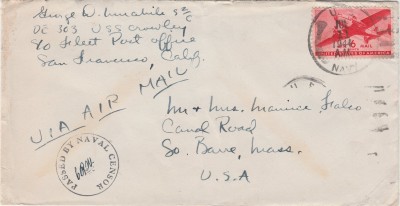 George D. Amabile S 2/C
DE 303 USS Crowley
c/o Fleet Post Office
San Francisco, Calif.
VIA AIR MAIL
Mr & Mrs. Maurice Falco
Canal Road
So. Barre, Mass.
U.S.A
PASSED BY NAVAL CENSOR
AIR MAIL
UNITED STATES OF AMERICA
NAVY